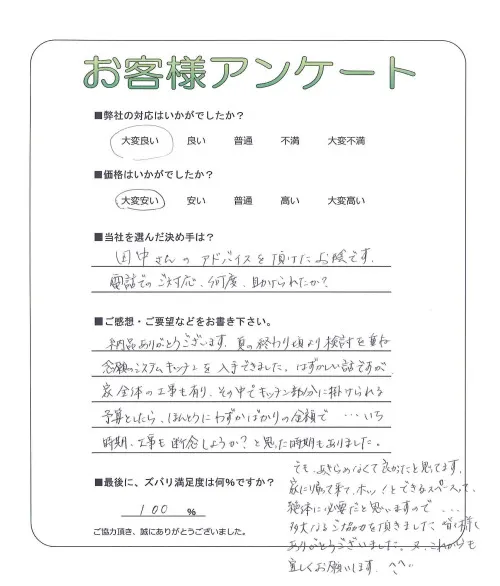 お客様アンケート
■弊社の対応はいかがでしたか？
大変良い 良い 普通 不満 大変不満
■価格はいかがでしたか？
大変安い 安い 普通 高い 大変高い
■当社を選んだ決め手は？
田中さんのアドバイスを頂けたお陰です。
電話でのご対応、何度、助けられたか？
■ご感想・ご要望などをお書き下さい。
納品ありがとうございます。夏の終わり頃より検討を重ね
念願のシステムキッチンを入手できました。はずかしい話ですが
家全体の工事も有り、その中でキッチン部分に掛けられる
予算としたら、ほんとうにわずかばかりの金額で…いち
時期、工事も断念しようか？と思った時期もありました。
でも、あきらめなくて良かったと思ってます。
家に帰って来て、ホッ！とできるスペースって、
絶体に必要だと思いますので…
多大なるご協力を頂きました皆様
ありがとうございました。又、これからも
宜しくお願いします。^^
■最後に、ズバリ満足度は何％ですか？
100 ％
ご協力頂き、誠にありがとうございました。